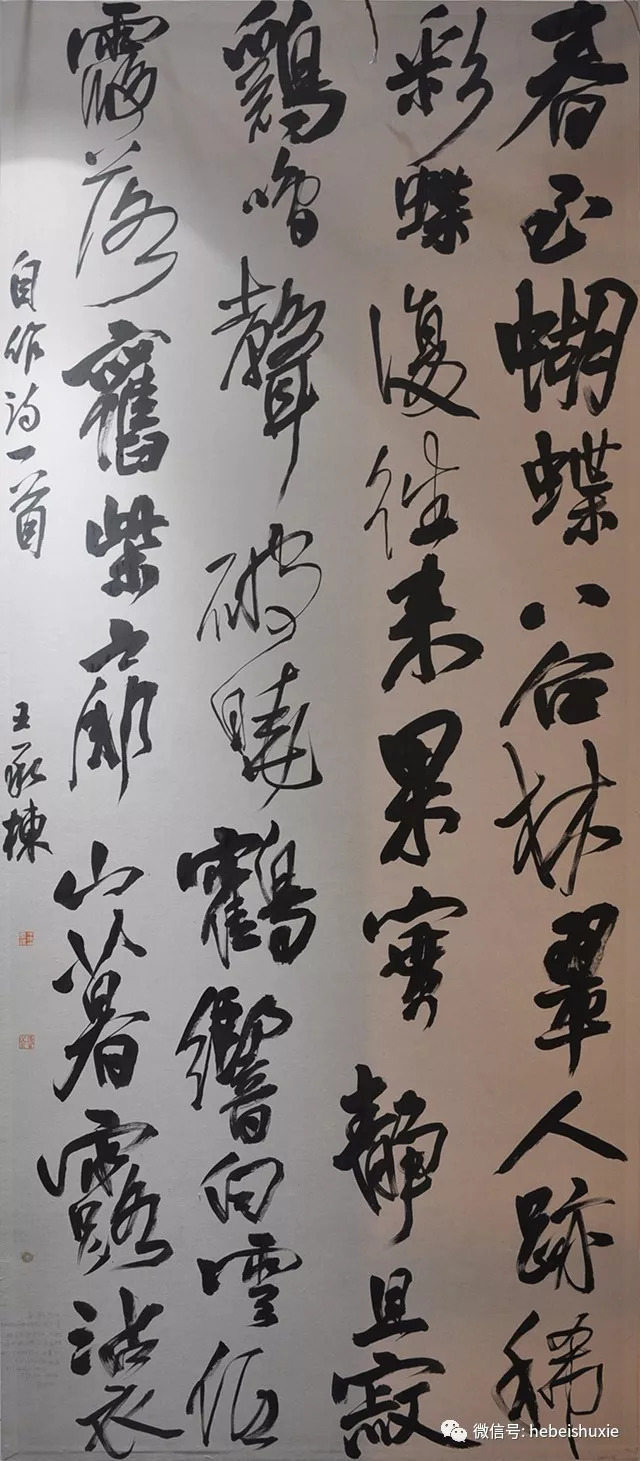 春至蝴蝶谷林翠人跡稀
彩蝶復往來果實靜且寂
鷄聲破曉鶴響向雲低
霞落舊柴扉山暮露沾衣
自作詩一首 王承棟
微信号: hebeishuxie